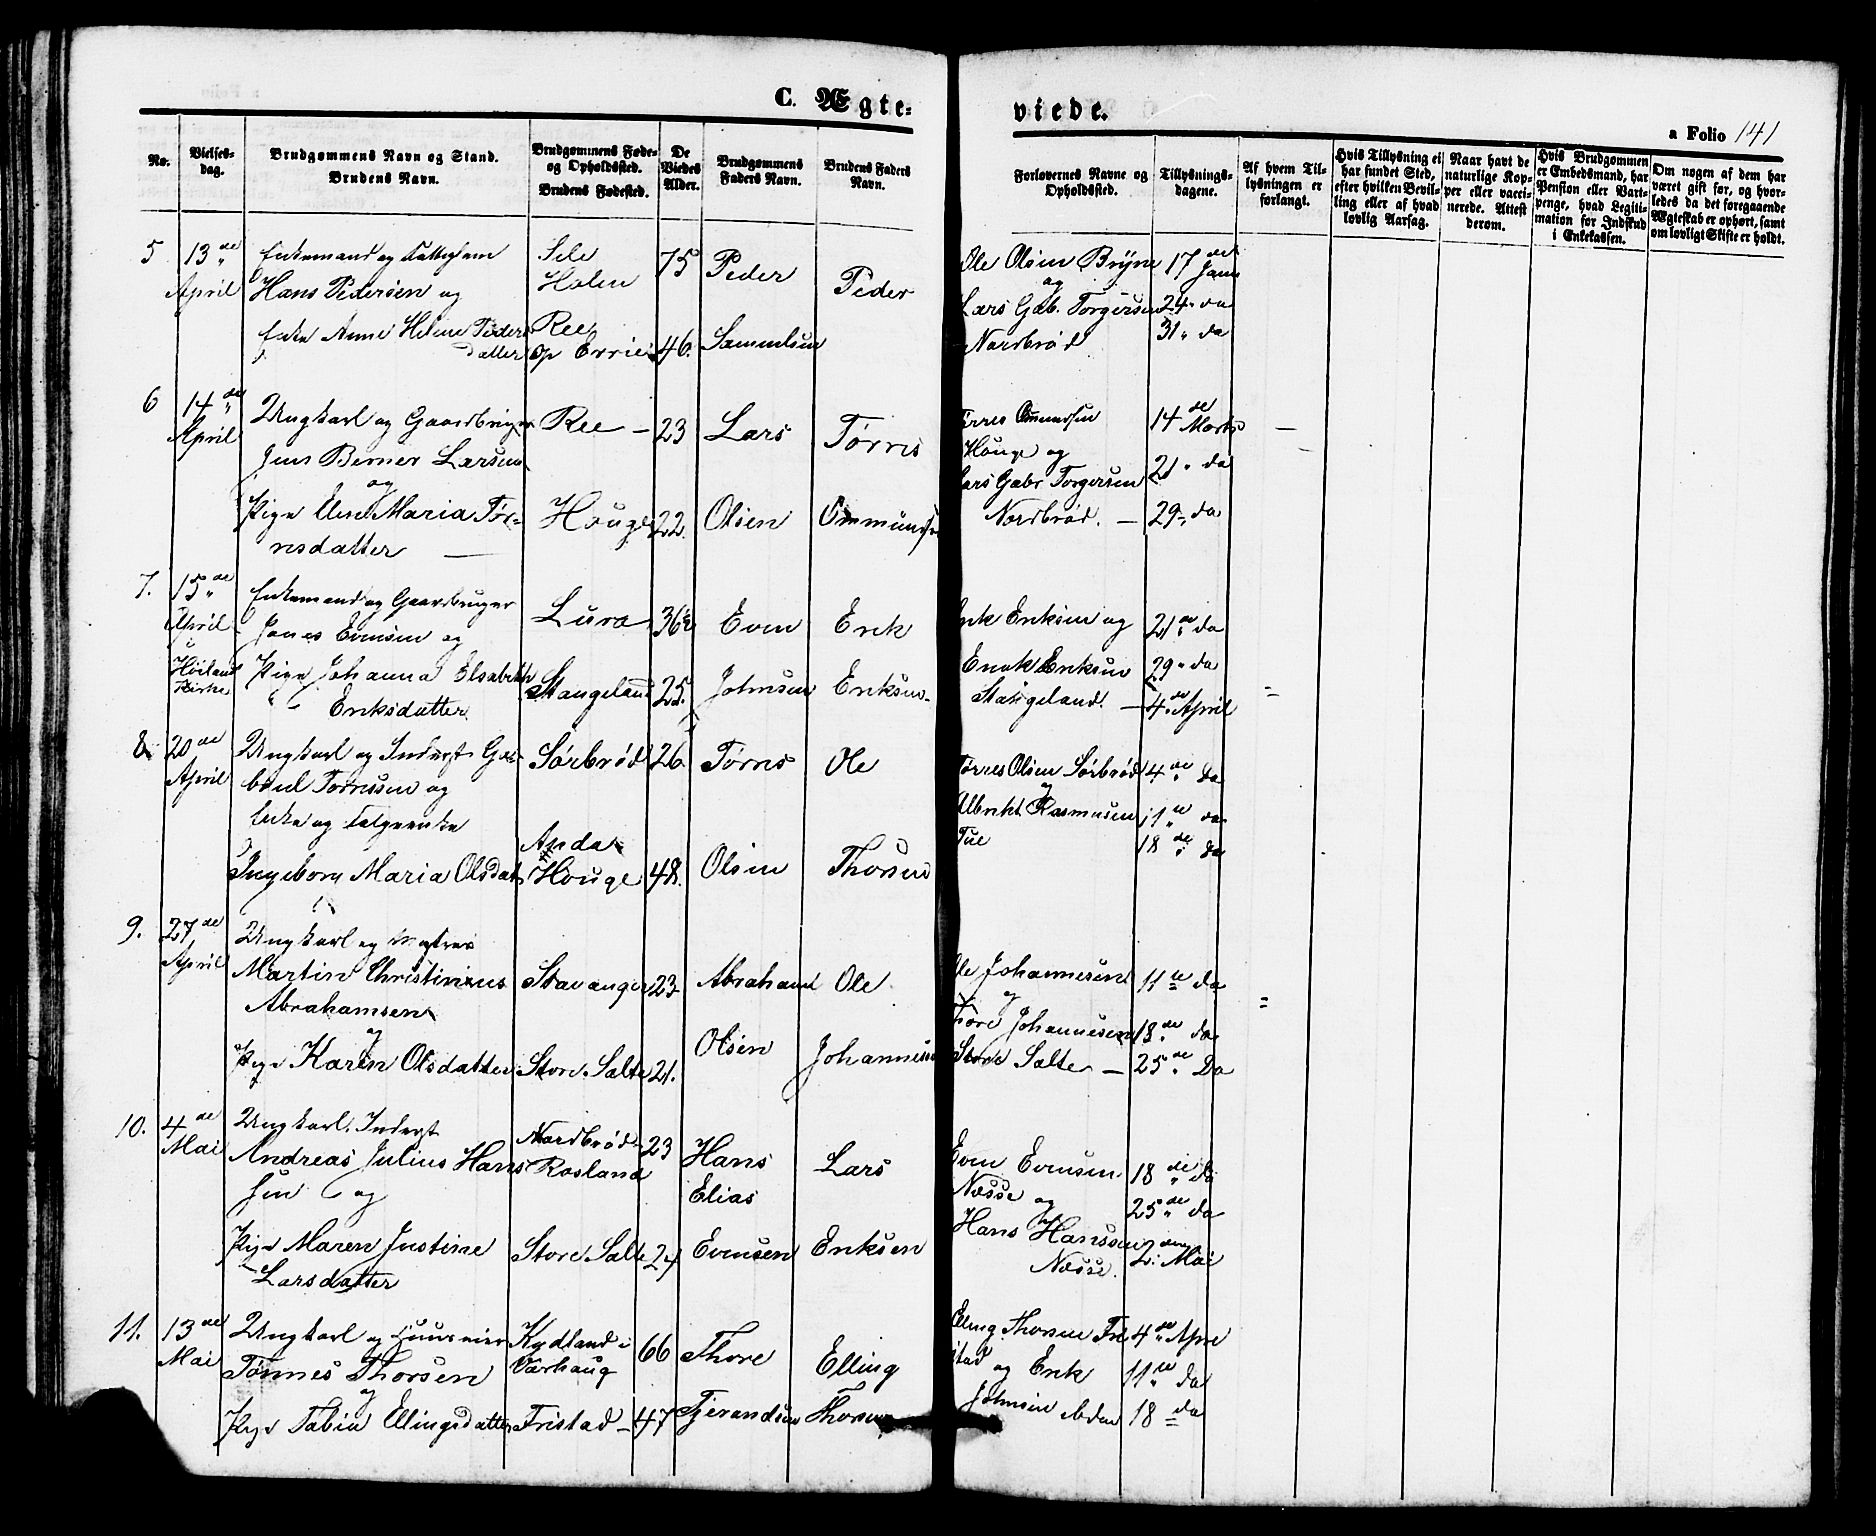 C. Ægte=
viede.
a Folio 141
No.
Vielses-
dag.
Brudgommens Navn og Stand.
Brudens Navn.
Brudgommens Føde-
og Opholdssted.
Brudens Fødested.
De
Viedes
Alder.
Brudgommens
Faders Navn.
Brudens Faders
Navn.
Forlovernes Navne og
Opholdssted.
Tillysnings-
dagene.
Af hvem Til-
lysningen er
forlangt.
Hvis Tillysning ei
har fundet Sted,
efter hvilken Bevil-
ling eller af hvad
lovlig Aarsag.
Naar havt de
naturlige Kop-
per eller vacci-
nerede. Attest
derom.
Hvis Brudgommen
er Embedsmand, har
Pension eller Vart-
penge, hvad Legiti-
mation for Indskud
i Enkekassen.
Om nogen af dem har
været gift før, og hvor-
ledes da det foregaaende
Ægteskab er ophørt, samt
om lovligt Skifte er holdt.
5 13de April
Enkemand og
Hans Pedersen og
Enke Anne Helene Peders
datter
Sele
Holen
Ree
75
46.
Peder
Sammelsen
Peder
Ole Olsen Bryne
og
Lars Gab. Torgersen
Nordbrød
17de Janu
24. da
31. da
6 14de April
Ungkarl og Gaardbruger
Jens Berner Larsen
og
Pige Elen Maria Tør-
risdatter
Ree
Houge
23
22.
Lars
Olsen
Tørris
Ommundsen
Tørres Ommundsen
Houge og
Lars Gabr Torgersen
Nordbrød.
14de Marts
21. da
29. da
7. 15de April
Høiland
Kirke
Enkemand og Gaardbruger
Jonas Evensen og
Pige Johanna Elsabeth
Eriksdatter
Lura
Stangeland
36½
25.
Even
Johnsen
Erik
Eriksen
Erik Eriksen og
Enok Eriksen
Stangeland.
21de da
29. da
4de April
8 20de April
Ungkarl og Inderst Ga-
briel Torrissen og
Enke og
Ingeborg Maria Olsdat
Sørbrød
Anda
Houge
26
48.
Tørris
Olsen
Ole
Thorsen
Tørres Olsen Sørbrød
og
Albrikt Rasmusen
Tue
4de da
11te da
18de da
9. 27de April
Ungkarl og
Martin Christinius
Abrahamsen
og
Pige Karen Olsdatter
Stavanger
Store Salte
23
21.
Abraham
Olsen
Ole
Johannesen
Ole Johannesen
og
Thore Johannesen
Store Salte
11te da
18de da
25de Da
10. 4de Mai
Ungkarl. Inderst
Andreas Julius Hans
sen og
Pige Maren Justine
Larsdatter
Nordbrød
Rosland
Store Salte
23
24
Hans
Elias
Evensen
Lars
Eriksen
Even Evensen
Næsse og
Hans Hanssen
Næsse.
18de da
25de da
2den Mai
11. 13de Mai
Ungkarl og Huusmand
Tønnes Thorsen
og
Pige Tabia Ellingsdatter
Kydland i
Varhaug
Fristad
66
47
Thore
Tjerandsen
Elling
Thorsen
Elling Thorsen Fri
stad og Erik
Johnsen
4de Apri
11te da
18 da